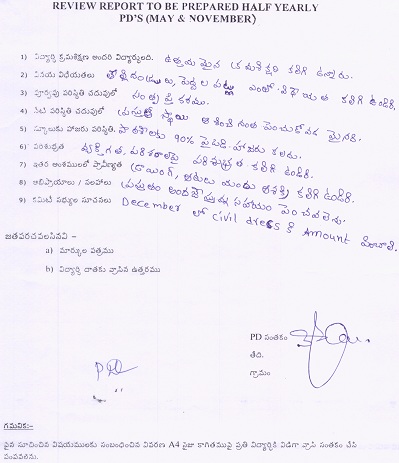 REVIEW REPORT TO BE PREPARED HALF YEARLY
PD'S (MAY & NOVEMBER)
1) విద్యార్థి క్రమశిక్షణ అందరి విద్యార్థులది. ఉత్తమమైన క్రమశిక్షణ కలిగి ఉన్నారు.
2) వినయ విధేయతలు తోటివారు, పెద్దల పట్ల ఎంతో విధేయత కలిగి ఉండిరి.
3) పూర్వపు పరిస్థితి చదువులో సంతృప్తికరము.
4) నేటి పరిస్థితి చదువులో ప్రస్తుత స్థాయి ఆశించినంత పెంచుకోవడమైనది.
5) స్కూలుకు హాజరు పరిస్థితి. పాఠశాలకు 90% పైబడి హాజరు కలదు.
6) పరిశుభ్రత వ్యక్తిగత, పరిసరాలపై పరిశుభ్రత కలిగి ఉండిరి.
7) ఇతర అంశములలో ప్రావీణ్యత డ్రాయింగ్, ఆటలు యందు ఆసక్తి కలిగి ఉండిరి.
8) అభిప్రాయాలు / సలహాలు ప్రస్తుతం అందజేస్తున్న సహాయం పెంచవలెను.
9) కమిటీ సభ్యుల సూచనలు December లో civil dress కి Amount పెంచాలి.
జతపరచవలసినవి -
a) మార్కుల పత్రము
b) విద్యార్థి దాతకు వ్రాసిన ఉత్తరము
PD సంతకం
తేది.
గ్రామం
గమనిక:-
పైన సూచించిన విషయములకు సంబంధించిన వివరణ A4 సైజు కాగితముపై ప్రతి విద్యార్థికి విడిగా వ్రాసి సంతకం చేసి
పంపవలెను.